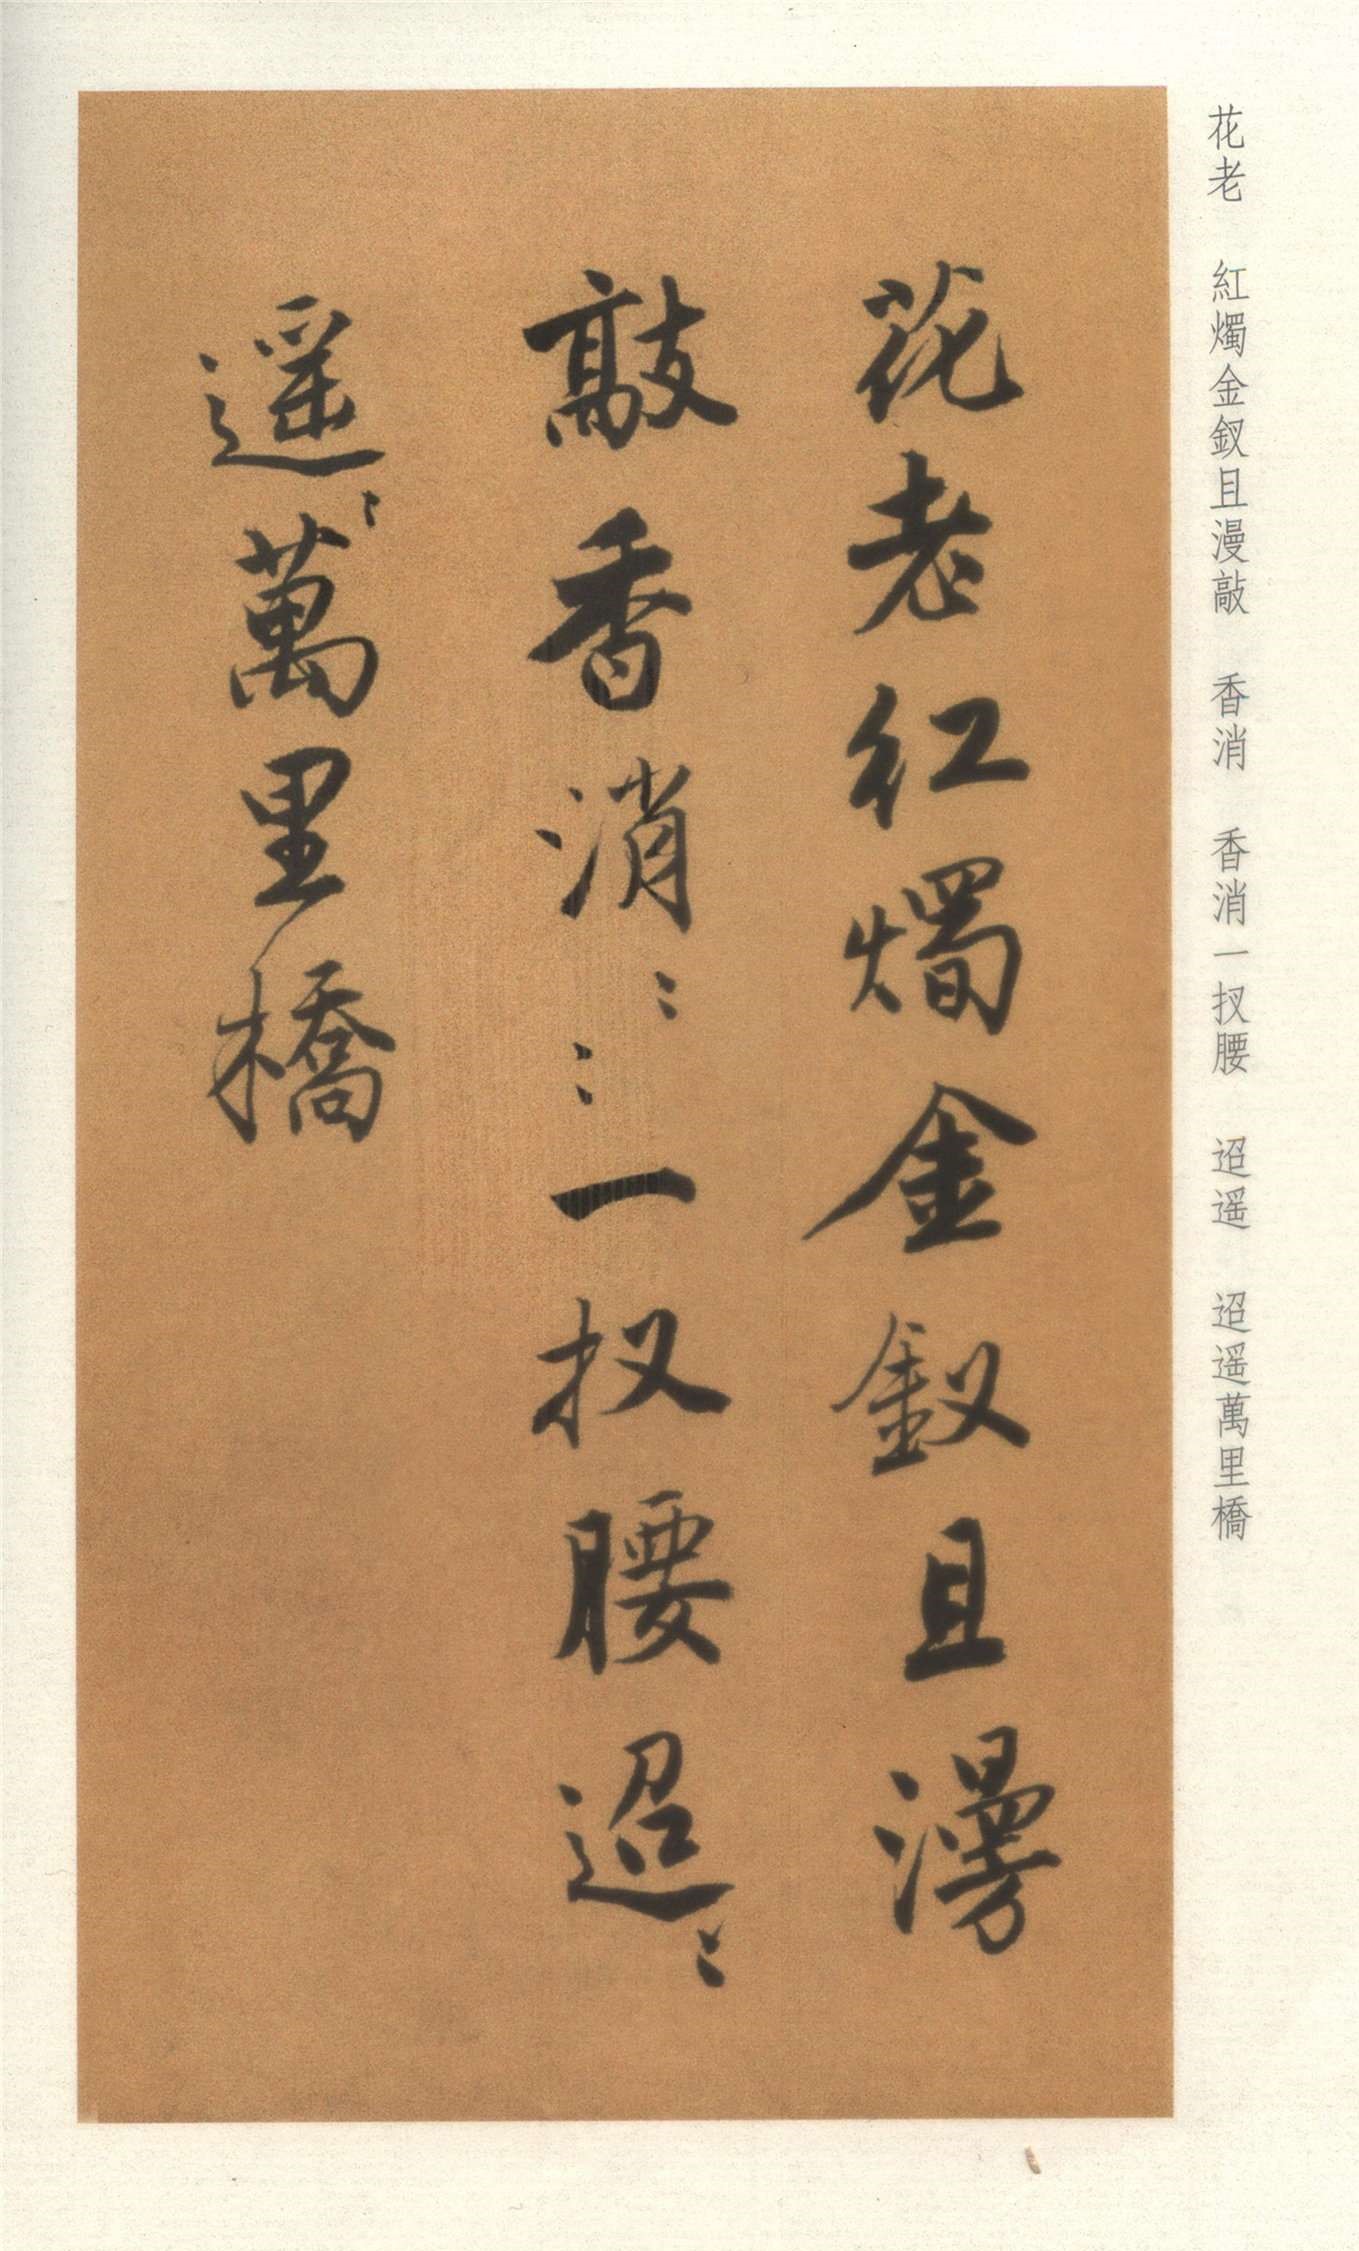 花老　紅燭金釵且漫敲　香消　香消一扠腰　迢遥　迢遥萬里橋
花老红燭金釵且漫
敲香消〻〻一扠腰迢〻
遥〻萬里橋